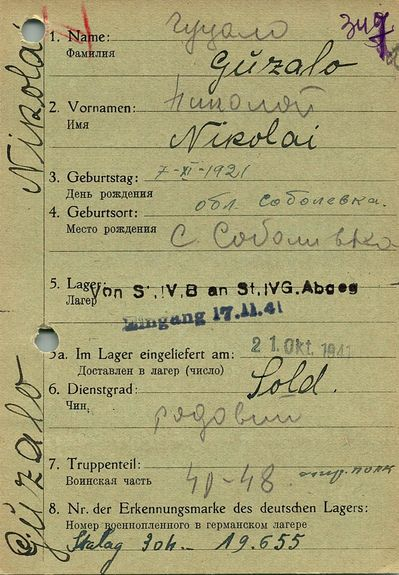 Nikolai
Guzalo
1. Name: гуцало
Фамилия
Gŭzalo
2. Vornamen: николай
Имя
Nikolai
3. Geburtstag: 7-XI-1921
День рождения
обл Соболевка.
4. Geburtsort:
Место рождения
с. Соболивка
5. Lager:
Лагер
Von St.IV,B an St.IVG.Abgeg
Eingang 17.11.41
5a. Im Lager eingeliefert am: 21. Okt. 1941
Доставлен в лагер (число)
6. Dienstgrad: Sold.
Чин,
рядовий
7. Truppenteil:
Воинская часть
48 полк
8. Nr. der Erkennungsmarke des deutschen Lagers:
Номер военнопленного в германском лагере
Stalag 304 - 19.655